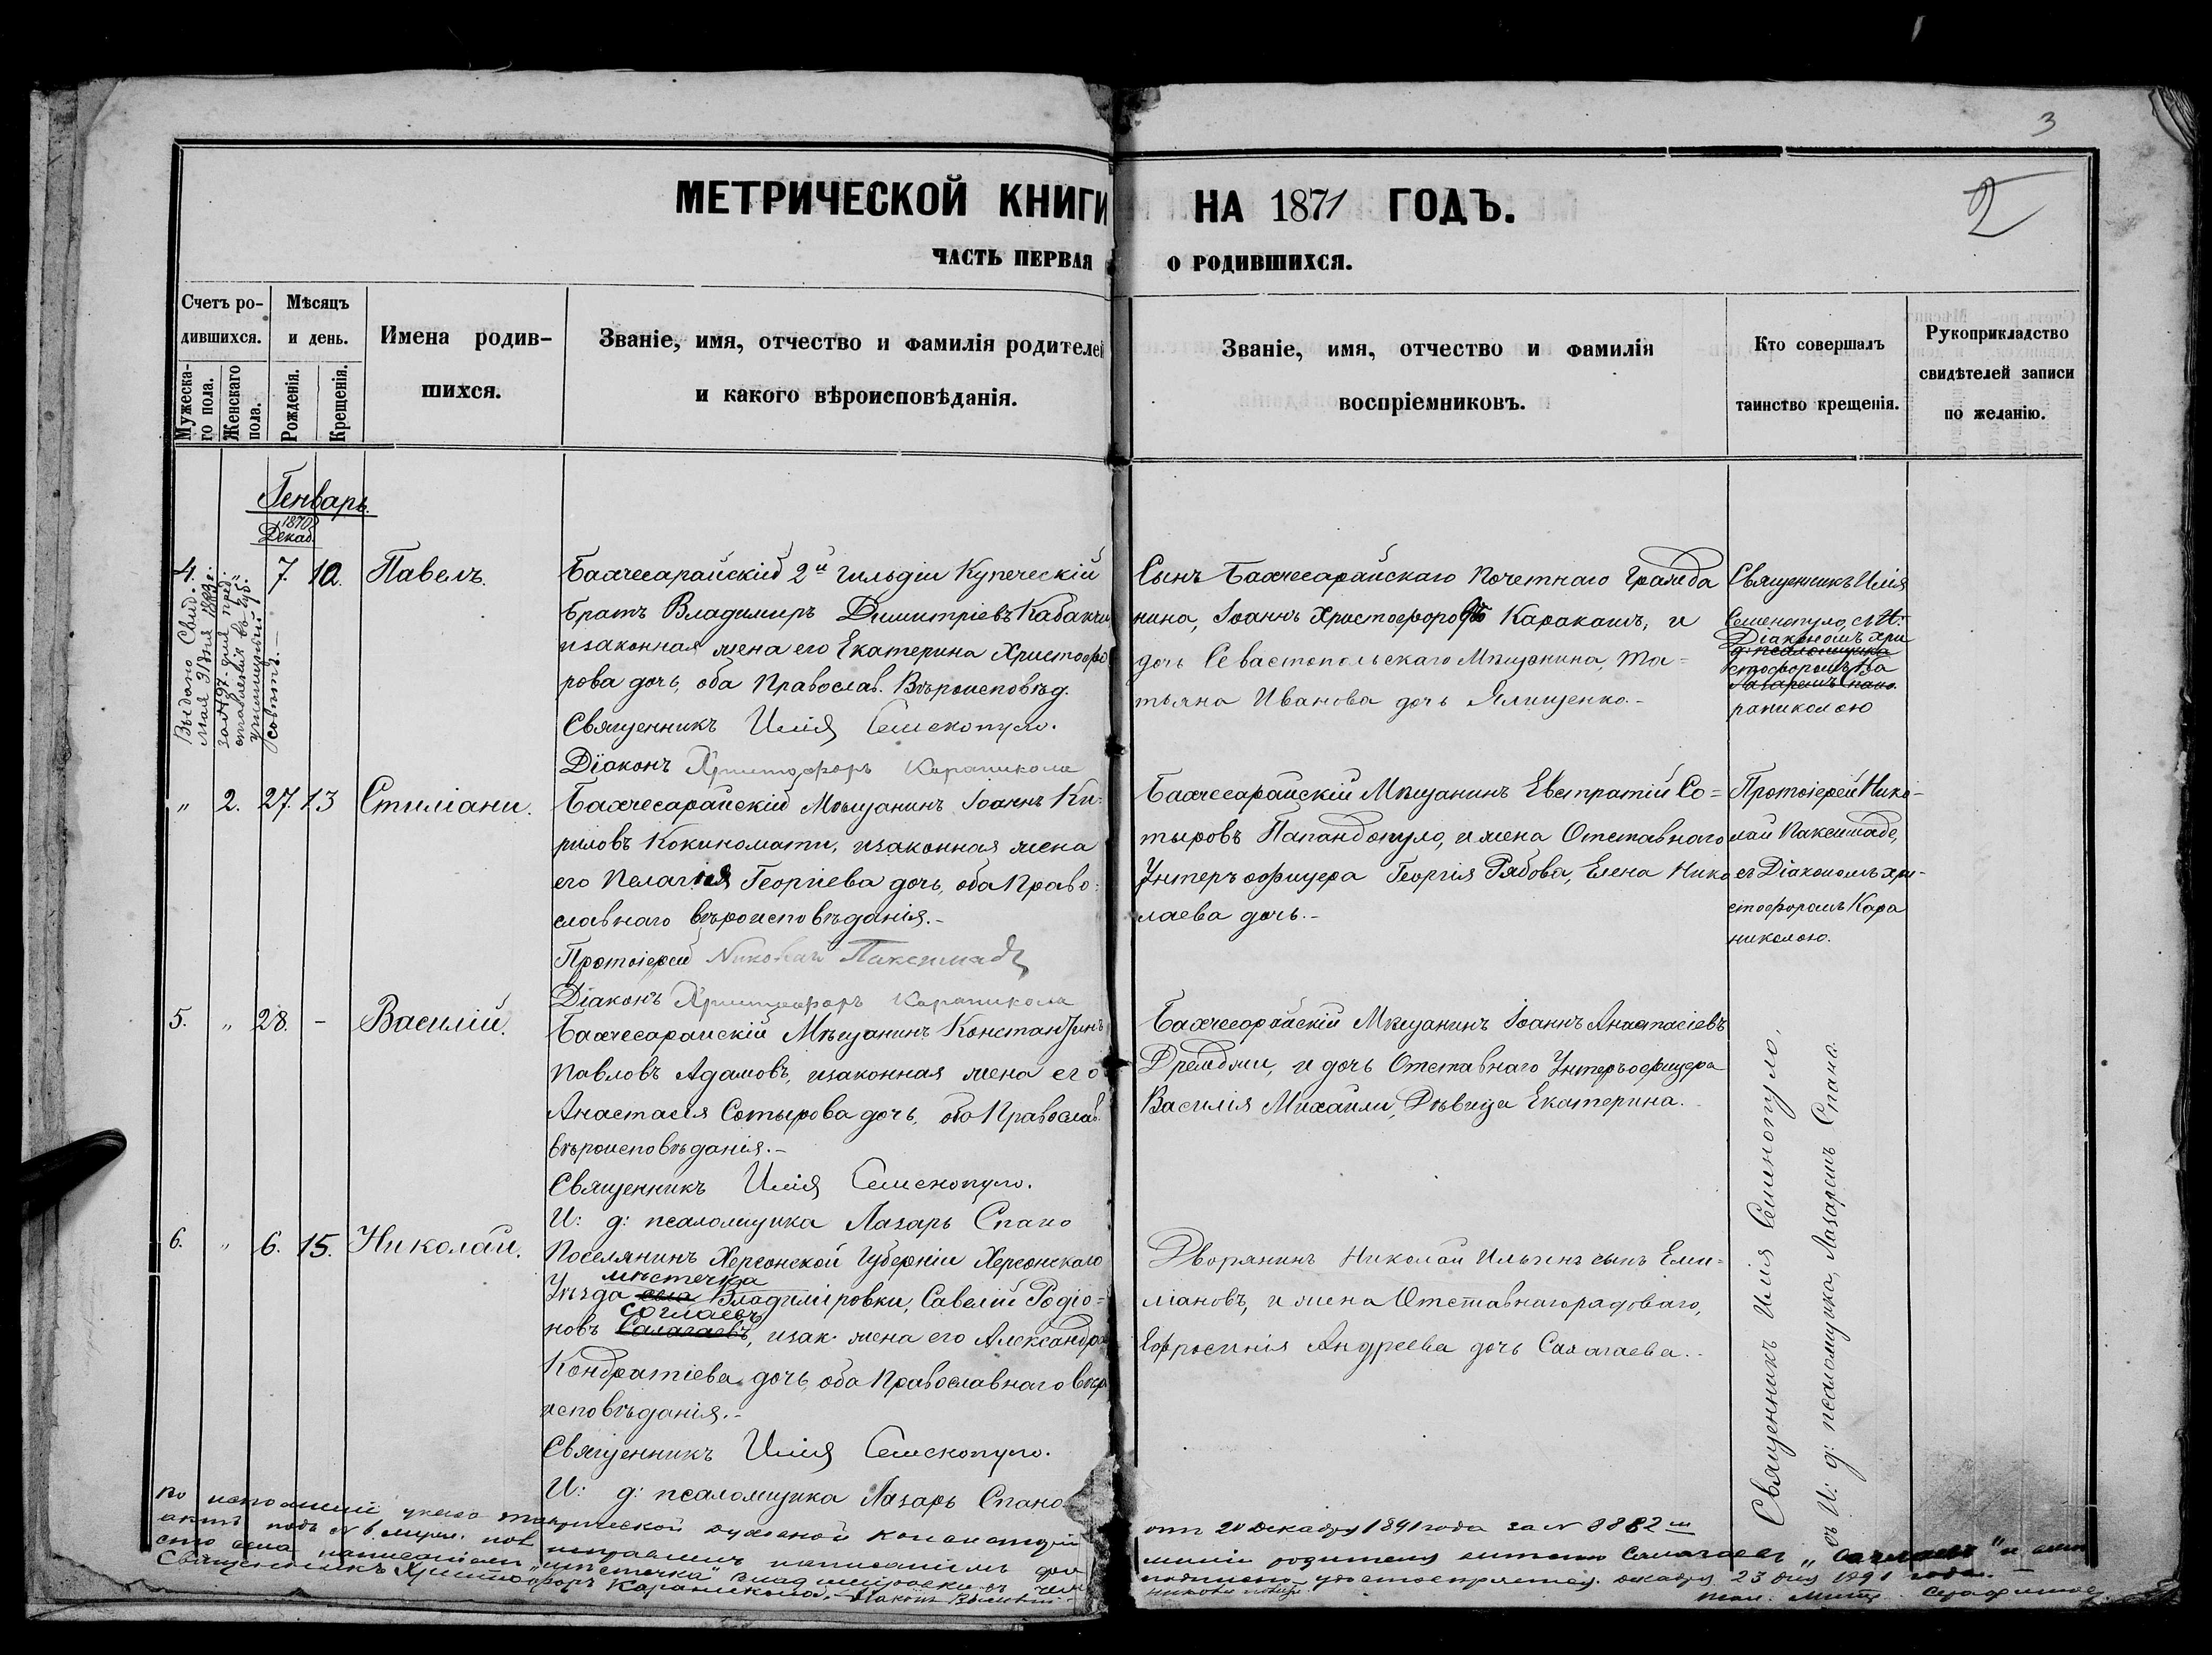 3
2
МЕТРИЧЕСКОЙ КНИГИ НА 1871 ГОДЪ.
ЧАСТЬ ПЕРВАЯ О РОДИВШИХСЯ.
Счетъ ро-
дившихся.
Мужеска-
го пола.
Женскаго
пола.
Мѣсяцъ
и день.
Рожденія.
Крещенія.
Имена родив-
шихся.
Званіе, имя, отчество и фамилія родителей
и какого вѣроисповѣданія.
Званіе, имя, отчество и фамилія
воспріемниковъ.
Кто совершалъ
таинство крещенія.
Рукоприкладство
свидѣтелей записи
по желанію.
Генварь.
1870
Декаб.
4. 7. 10. Павелъ.
Выдано Свид.
Бахчесарайскій 2й гильдіи Купеческій
братъ Владимиръ Димитріевъ
изаконная жена его Екатерина Христофо
рова дочь, оба Православ. Вѣроисповѣд.
Священникъ Илія Семенопуло.
Діаконъ Христофоръ Караникола
Сынъ Бахчесарайскаго Почетнаго Гражда
нина, Іоаннъ Христофоровъ Каракашъ, и
дочь Севастопольскаго Мѣщанина, Та=
тьяна Иванова дочь Ялищенко.-
Священникъ Илія
Семенопуло, съ И:
Діакономъ Хри
д: псаломщика
стофоромъ Ка
Лазаремъ Спано.
раниколою
" 2. 27. 13 Стиліани.
Бахчесарайскій Мѣщанинъ Іоаннъ Ки=
риловъ Кокиномати, изаконная жена
его Пелагія Георгіева дочь, оба Право:
славнаго вѣроисповѣданія.-
Протоіерей Николай Паксимаде
Діаконъ Христофоръ Караникола
Бахчесарайскій Мѣщанинъ Евстратій Со=
тыровъ Папандопуло, и жена Отставнаго
Унтеръ офицера Георгія Рябова, Елена Нико
лаева дочь.-
Протоіерей Нико-
лай Паксимаде,
съ Діакономъ Хри-
стофоромъ Кара
николою.
5. " 28. - Василій.
Бахчесарайскій Мѣщанинъ Константинъ
Павловъ Адамовъ, изаконная жена его
Анастасія Сотырова дочь, оба Православ.
вѣроисповѣданія.-
Священникъ Илія Семенопуло.
И: д: псаломщика Лазарь Спано
Бахчесарайскій Мѣщанинъ Іоаннъ Анастасіевъ
и дочь Отставнаго Унтеръофицера
Василія Михаили, Дѣвица Екатерина.
6. " 6. 15. Николай.
Поселянинъ Херсонской Губерніи Херсонскаго
мѣстечка
Уѣзда села Владиміровки, Савелій Родіо=
Соглаевъ
новъ Салагаевъ, изак. жена его Александра
Кондратіева дочь, оба Православнаго вѣро
исповѣданія.-
Священникъ Илія Семенопуло.
И: д: псаломщика Лазарь Спано
Дворянинъ Николай Ильинъ сынъ Еми=
ліановъ, и жена Отставнагорядоваго,
Ефросинія Андреева дочь Салагаева.-
Священникъ Илія Семинопуло,
съ И: д: псаломщика, Лазаремъ Спано.
указа Таврической Духовной Консисторіи
отъ 20 декабря 1891 года за № 8882
Священникъ Христофоръ Караникола.
декабря 23 дня 1891 года.